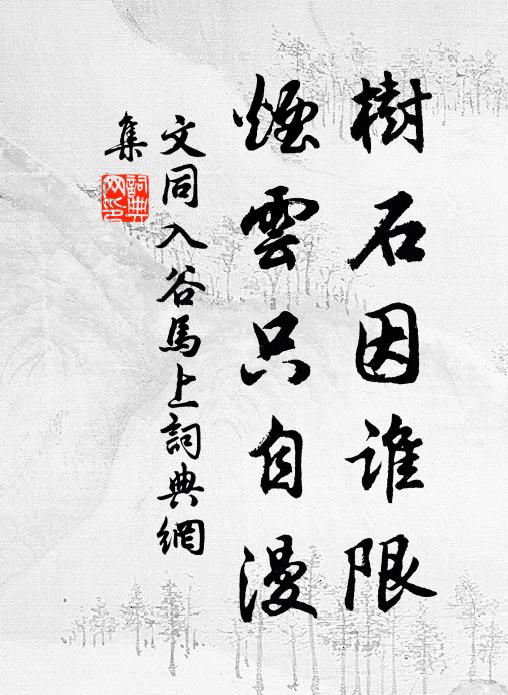 樹石因誰限
煙雲只自漫
文同入谷馬上詞典網
集
詞典
网印